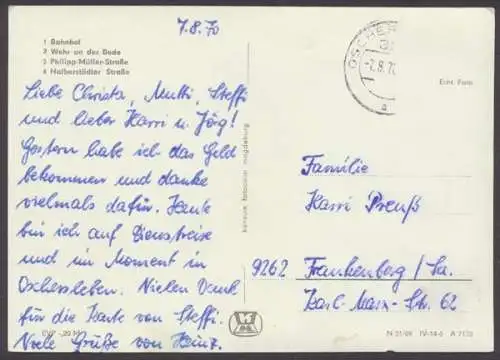 7.8.70
1 Bahnhof
2 Wehr an der Bode
3 Philipp-Müller-Straße
4 Halberstädter Straße
Liebe Christa, Mutti, Steffi
und lieber Harri u. Jörg!
Gestern habe ich das Geld
bekommen und danke
vielmals dafür. Heute
bin ich auf Dienstreise
und im Moment in
Oschersleben. Vielen Dank
für die Karte von Steffi.
Viele Grüße von Heinz.
EVP -,20 M
konsum fotocolor magdeburg
OSCHERS
-7.8.70
a
Echt Foto
Familie
Harri Preuß
9262 Frankenberg/Sa.
Karl-Marx-Str. 62
IV-14-6 A 71